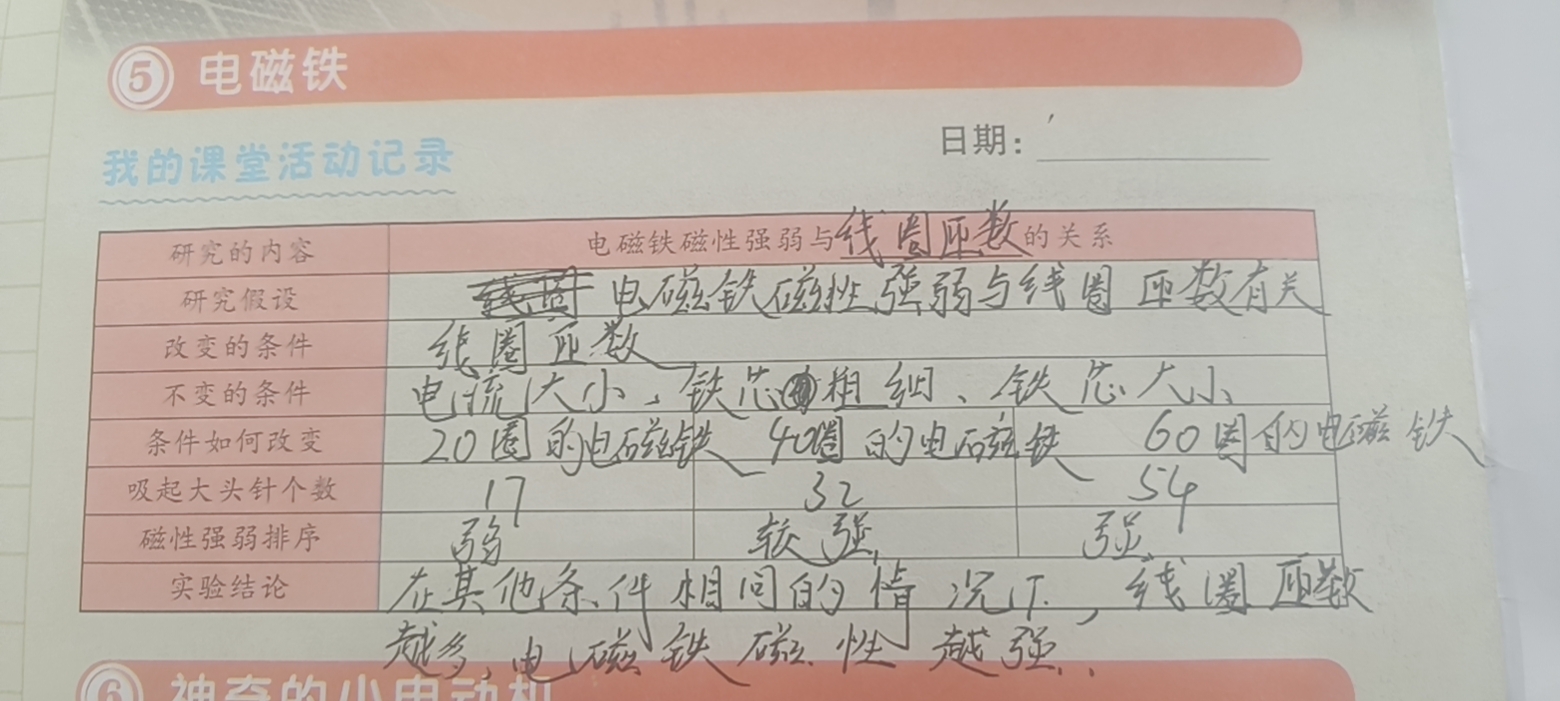 5 电磁铁
日期：
我的课堂活动记录
研究的内容 电磁铁磁性强弱与线圈匝数的关系
研究假设 电磁铁磁性强弱与线圈匝数有关
改变的条件 线圈匝数
不变的条件 电流大小、铁芯粗细、铁芯大小
条件如何改变 20圈的电磁铁 40圈的电磁铁 60圈的电磁铁
吸起大头针个数 17 32 54
磁性强弱排序 弱 较强 强
实验结论 在其他条件相同的情况下，线圈匝数
越多，电磁铁磁性越强.
6 神奇的小电动机